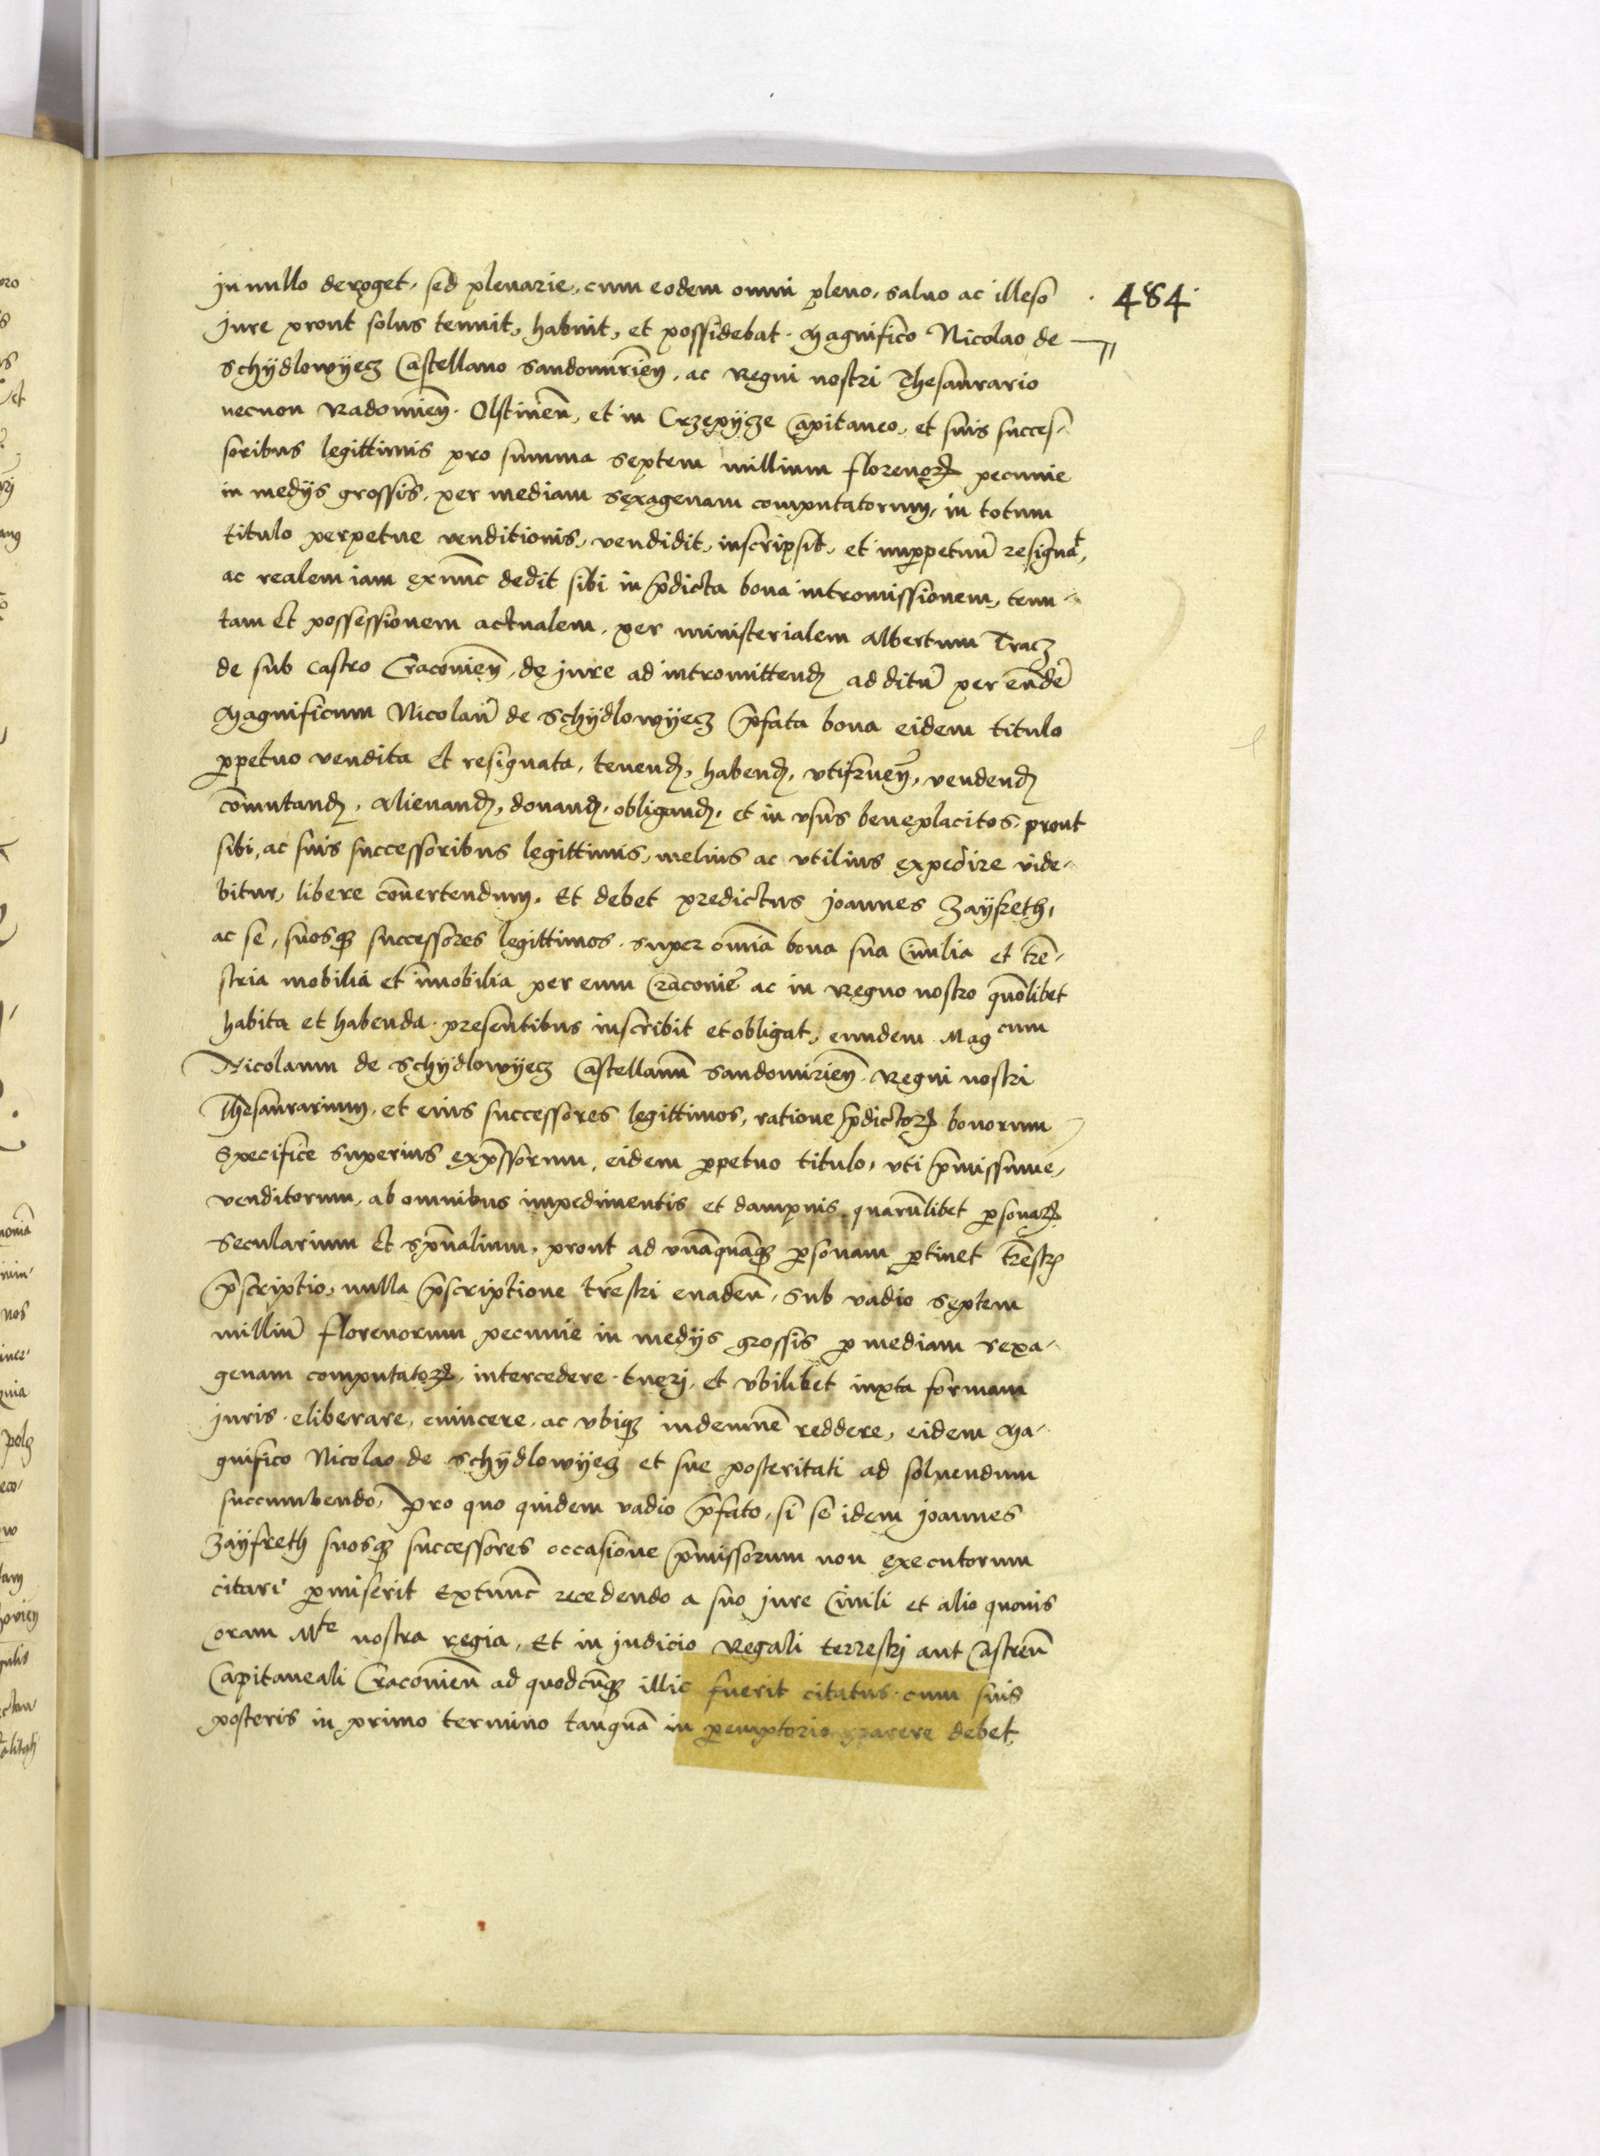 in nullo deroget, sed plenarie, cum eodem omni pleno, saluo ac illeso
484
jure prout solus tenuit, habuit, et possidebat. Magnifico Nicolao de
Schÿdlowÿecz Castellano Sandomirieñ, ac Regni nostri Thesaurario
necnon Radomieñ. Olstineñ, et in Crzepÿcze Capitaneo, et suis succes-
soribus legittimis pro summa septem millium florenoꝝ pecunie
in medÿs grossis, per mediam sexagenam computatorum, in totum
titulo perpetue venditionis, vendidit, inscripsit, et inꝑpetuũ resignat,
ac realem iam exnunc dedit sibi in p̃dicta bona intromissionem, tenu-
tam et possessionem actualem, per ministerialem Albertum Tracz
de sub castro Cracovieñ, de jure ad intromittend additũ per eundẽ
Magnificum Nicolaũ de Schÿdlowÿecz p̃fata bona eidem titulo
ꝑpetuo vendita et resignata, tenend, habend, vtifrueñ, vendend
cõmutand, alienand, donand, obligand, et in vsus beneplacitos prout
sibi, ac suis successoribus legittimis, melius ac vtilius expedire vide-
bitur, libere cõuertendum. Et debet predictus Joannes Zayfreth,
ac se, suosqꝫ successores legittimos super om̃ia bona sua Ciuilia et tr̃e-
stria mobilia et im̃obilia per eum Cracouiẽ ac in Regno nostro quõlibet
habita et habenda presentibus inscribit et obligat, eundem Magcum
Nicolaum de Schÿdlowÿecz Castellanũ Sandomirieñ Regni nostri
Thesaurarium, et eius successores legittimos, ratione p̃dictoꝝ bonorum
specifice superius exp̃ssorum, eidem ꝑpetuo titulo, vti p̃missum ẽ,
venditorum, ab omnibus impedimentis et dampnis quarũlibet ꝑsonaꝝ
Secularium et spũalium, prout ad vnãquãqꝫ ꝑsonam ꝑtinet tr̃estr
p̃scriptio, nulla p̃scriptione tr̃estri euadeñ, sub vadio septem
milliũ florenorum pecunie in medÿs grossis ꝑ mediam sexa-
genam computatoꝝ, intercedere, tueri, et vbilibet iuxta formam
juris eliberare, euincere, ac vbiqꝫ indemnẽ reddere, eidem Ma-
gnifico Nicolao de Schÿdlowÿecz et sue posteritati ad soluendum
succumbendo, Pro quo quidem vadio p̃fato, si se idem Joannes
Zayfreth suosqꝫ successores occasione p̃missorum non executorum
citari ꝑmiserit extunc recedendo a suo jure Ciuili et alio quouis
coram Mte nostra regia, Et in judicio Regali terrestrj aut Castreñ
Capitaneali Cracouieñ ad quodcũqꝫ illic fuerit citatus cum suis
posteris in primo termino tanquã in ꝑemptorio parere debet,